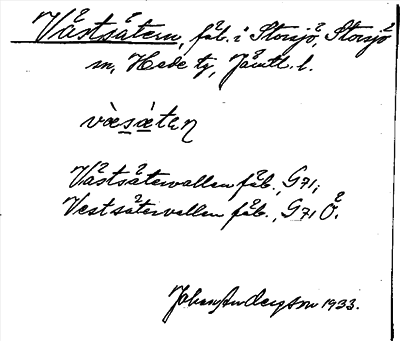 Våstsåtern, fäb. i Storsjö, Storsjö
sn, Hede tg, Jämtl. l.
vàsàten
Våstsåtervallen fäb., G71;
Vestsätervallen fäb., G71 Ö.
Johan Anderson 1933.